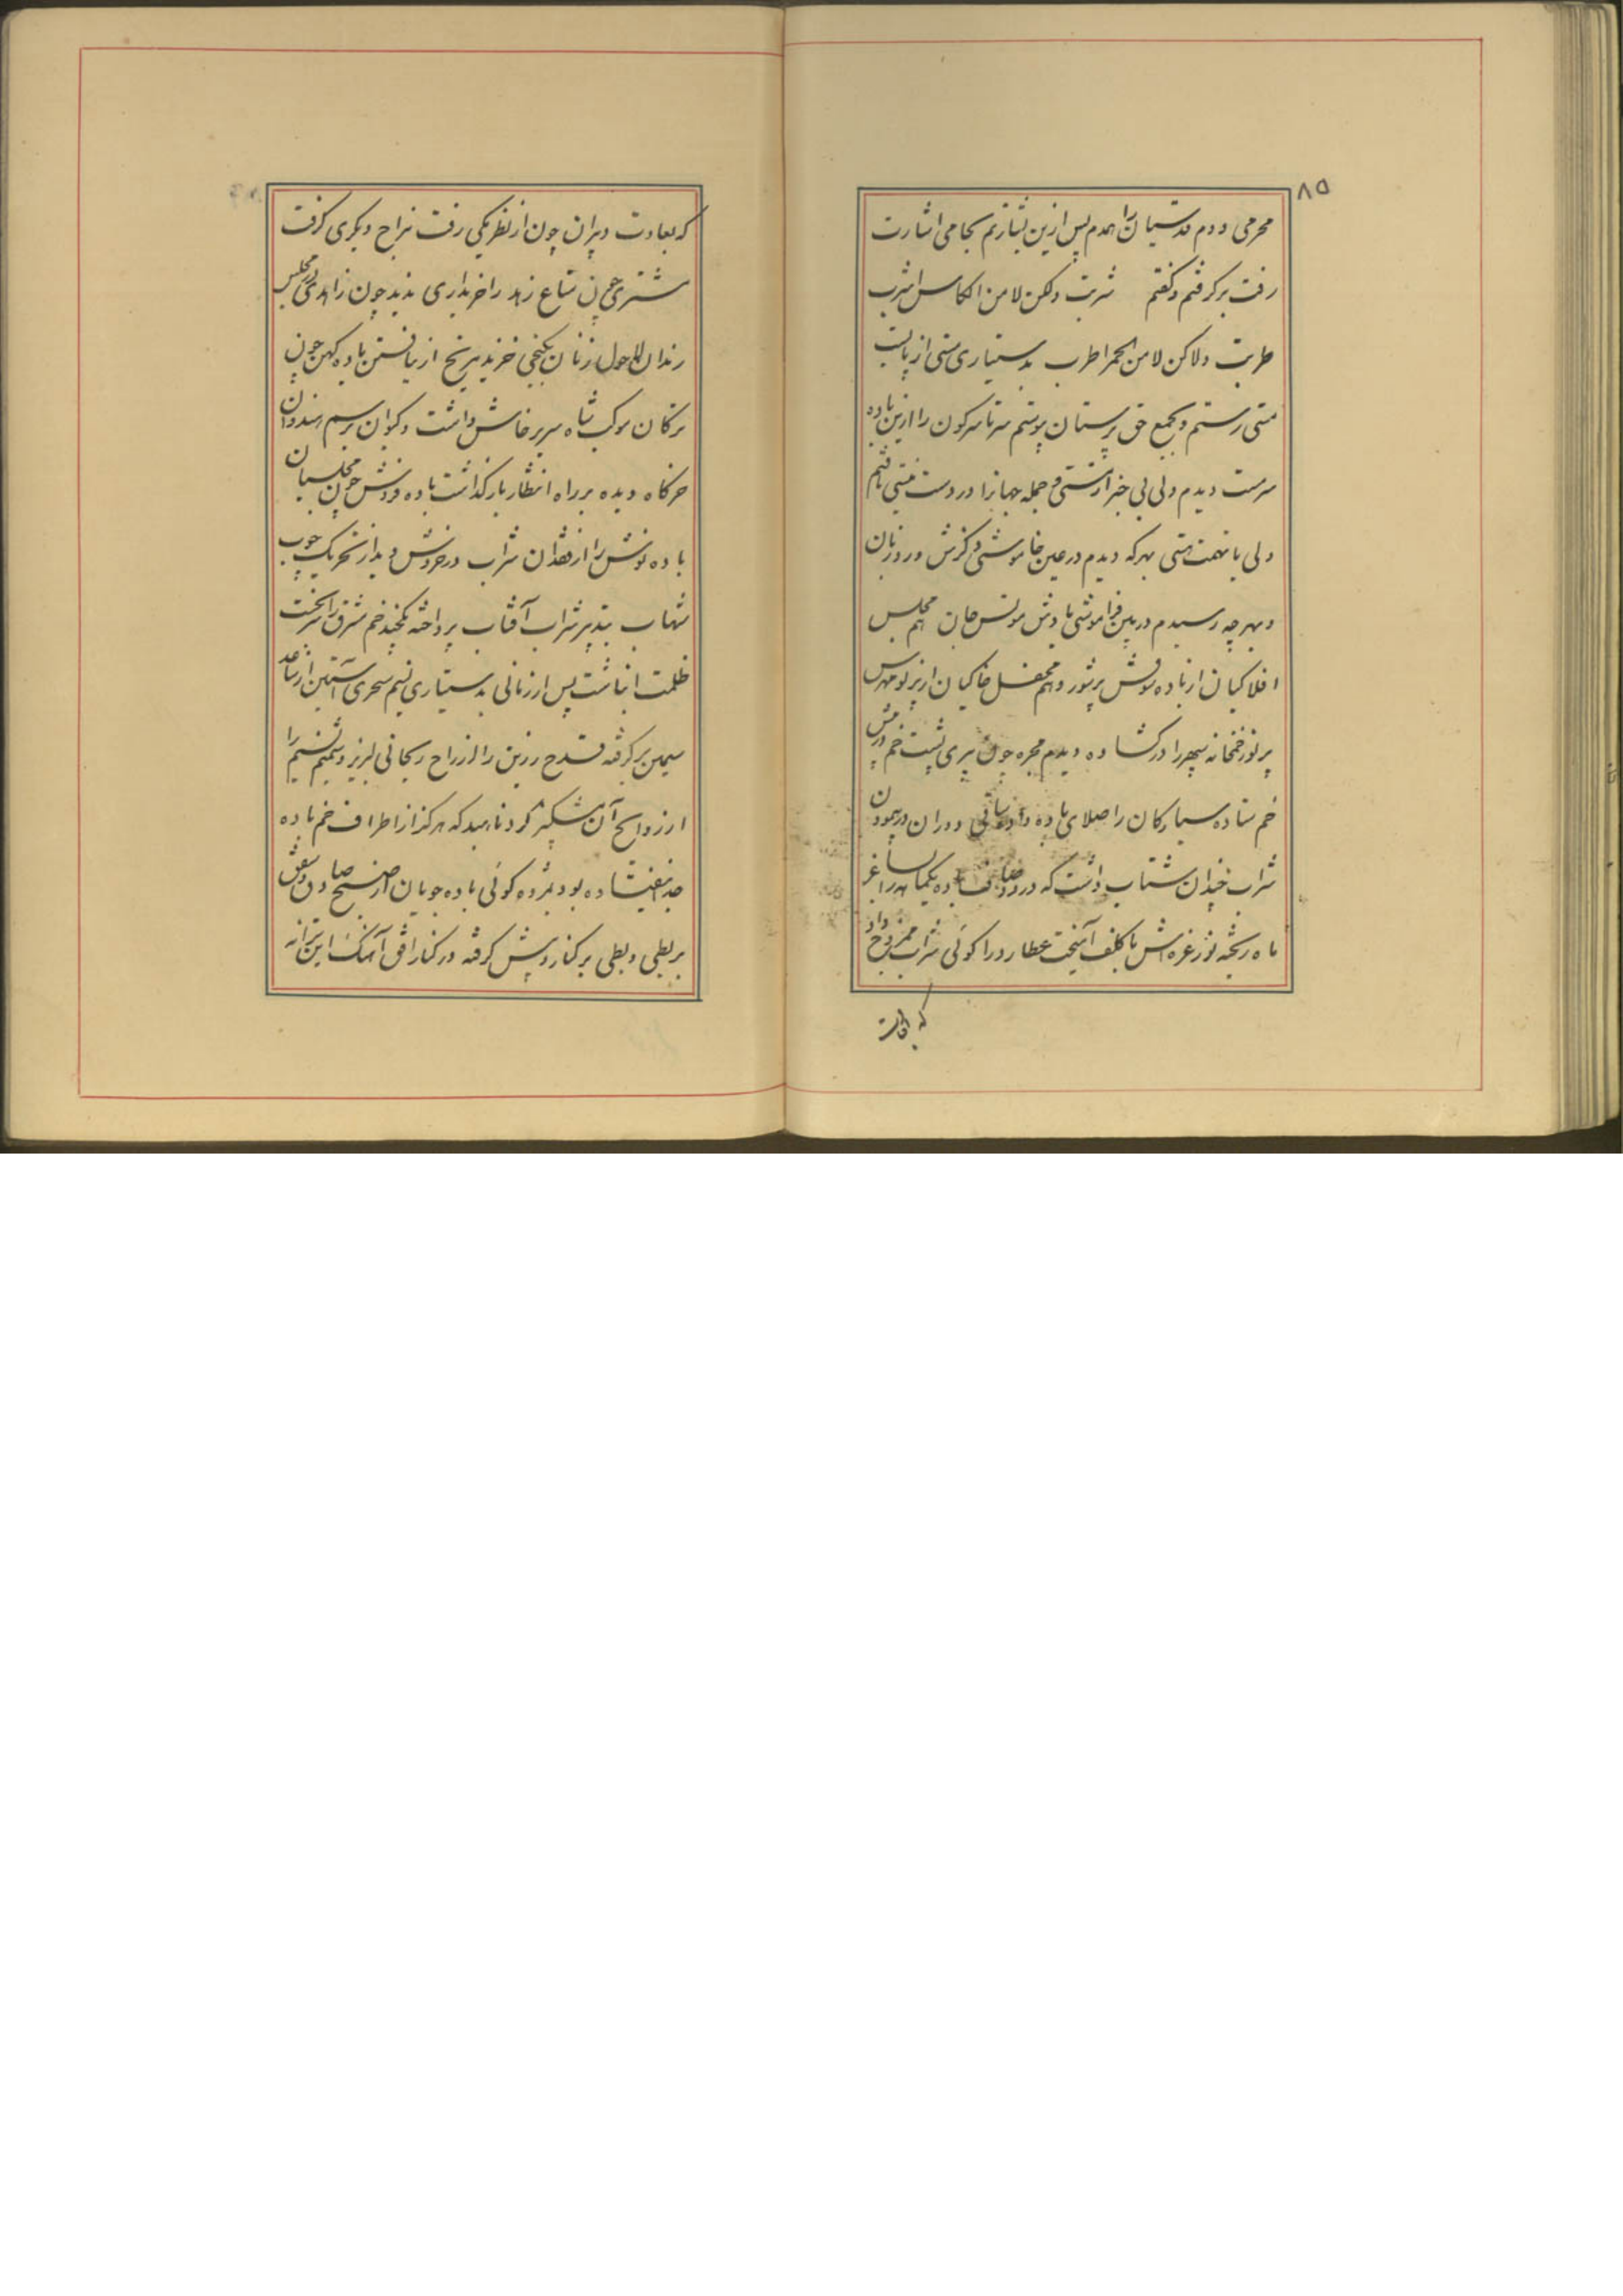 ۸۵
محرمی و دم قدسیان را همدم پس ازین بشارتم بجامی اشارت
رفت برگرفتم و گفتم شربت ولکن لا من الکاس اشرب
طربت ولاکن لا من الخمر اطرب بدستیاری مستی از پایست
متنی رستم و بجمع حق پرستان پیوستم سرتاسر کون را ازین باده
سرمست دیدم ولی بی خبر از مستی و جمله جهانرا در دست نیستی یافتم
ولی با تهمت هستی بهر که دیدم در عین خاموشی ذکرش ورد زبان
و بهر چه رسیدم در بین فراموشی یادش مونس جان هم مجلس
افلاکیان از باده شوقش پرشور و هم محفل خاکیان از پرتو مهرش
پرنور خمخانه سپهر را در گشاده دیدم مجره چون پیری پشت خم در پیش
خم ستاده سیارگان را صلای باده داده ساقی دوران در پیمودن
شراب چندان شتاب داشت که درد و صاف باده یکجا همه را بساغر
ماه ریخته نور غره‌اش با کلف آمیخت عطارد را گوئی شراب ممزوج داد
که بعادت
که بعادت دبیران چون از نظر یکی رفت مزاج دیگری گرفت
مشتری چون متاع زهد را خریداری ندید چون زاهدی در مجلس
رندان لاحول زنان بکنجی خزید مریخ از نیافتن باده کهن چون
ترکان موکب شاه سر پرخاش داشت و کیوان برسم هندوان
خرگاه دیده بر راه انتظار بار گذاشت باده فروش چون مجلسیان
باده نوش را از فقدان شراب در خروش دید از تحریک چوب
شهاب بتدبیر شراب آفتاب پرداخته بکنجید خم مشرق را سر بخشت
ظلمت انباشت پس از زمانی بدستیاری نسیم سحری آستین از ساعد
سیمین برگرفته قدح زرین را از راح ریحانی لبریز و شمیم نسیم را
از روایح آن مشکبیز کرد ناهید که هرگز از اطراف خم باده
جدا نیفتاده بود بمژده گوئی باده جویان از صبح صادق دفش
بربطی و بطی بر کنار و پیش گرفته در کنار افق آهنگ این ترانه